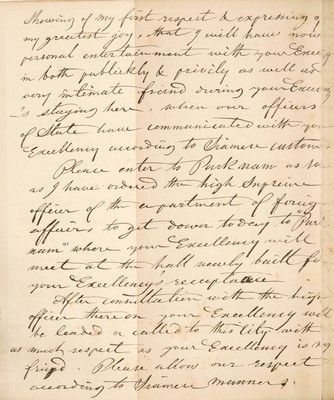 Showing of my first respect & expressing of
my greatest joy, that I will have now
personal entertainment with your Excey
in both publickly & privily as well as
very intimate friend during your Excey
's staying here, when our officers
of State have communicated with your
Excellency according to Siamese custom
Please enter to Paknam as so
as I have ordered the high Supreme
officer of the department of foreig
affairs to get down today to Pak
nam" where your Excellency will
meet at the hall newly built for
your Excellency's receptance
After consultation with the high
officer thereon your Excellency will
be leaded or called to this City with
as much respect as your Excellency is my
friend. Please allow our respect
according to Siamese manners.